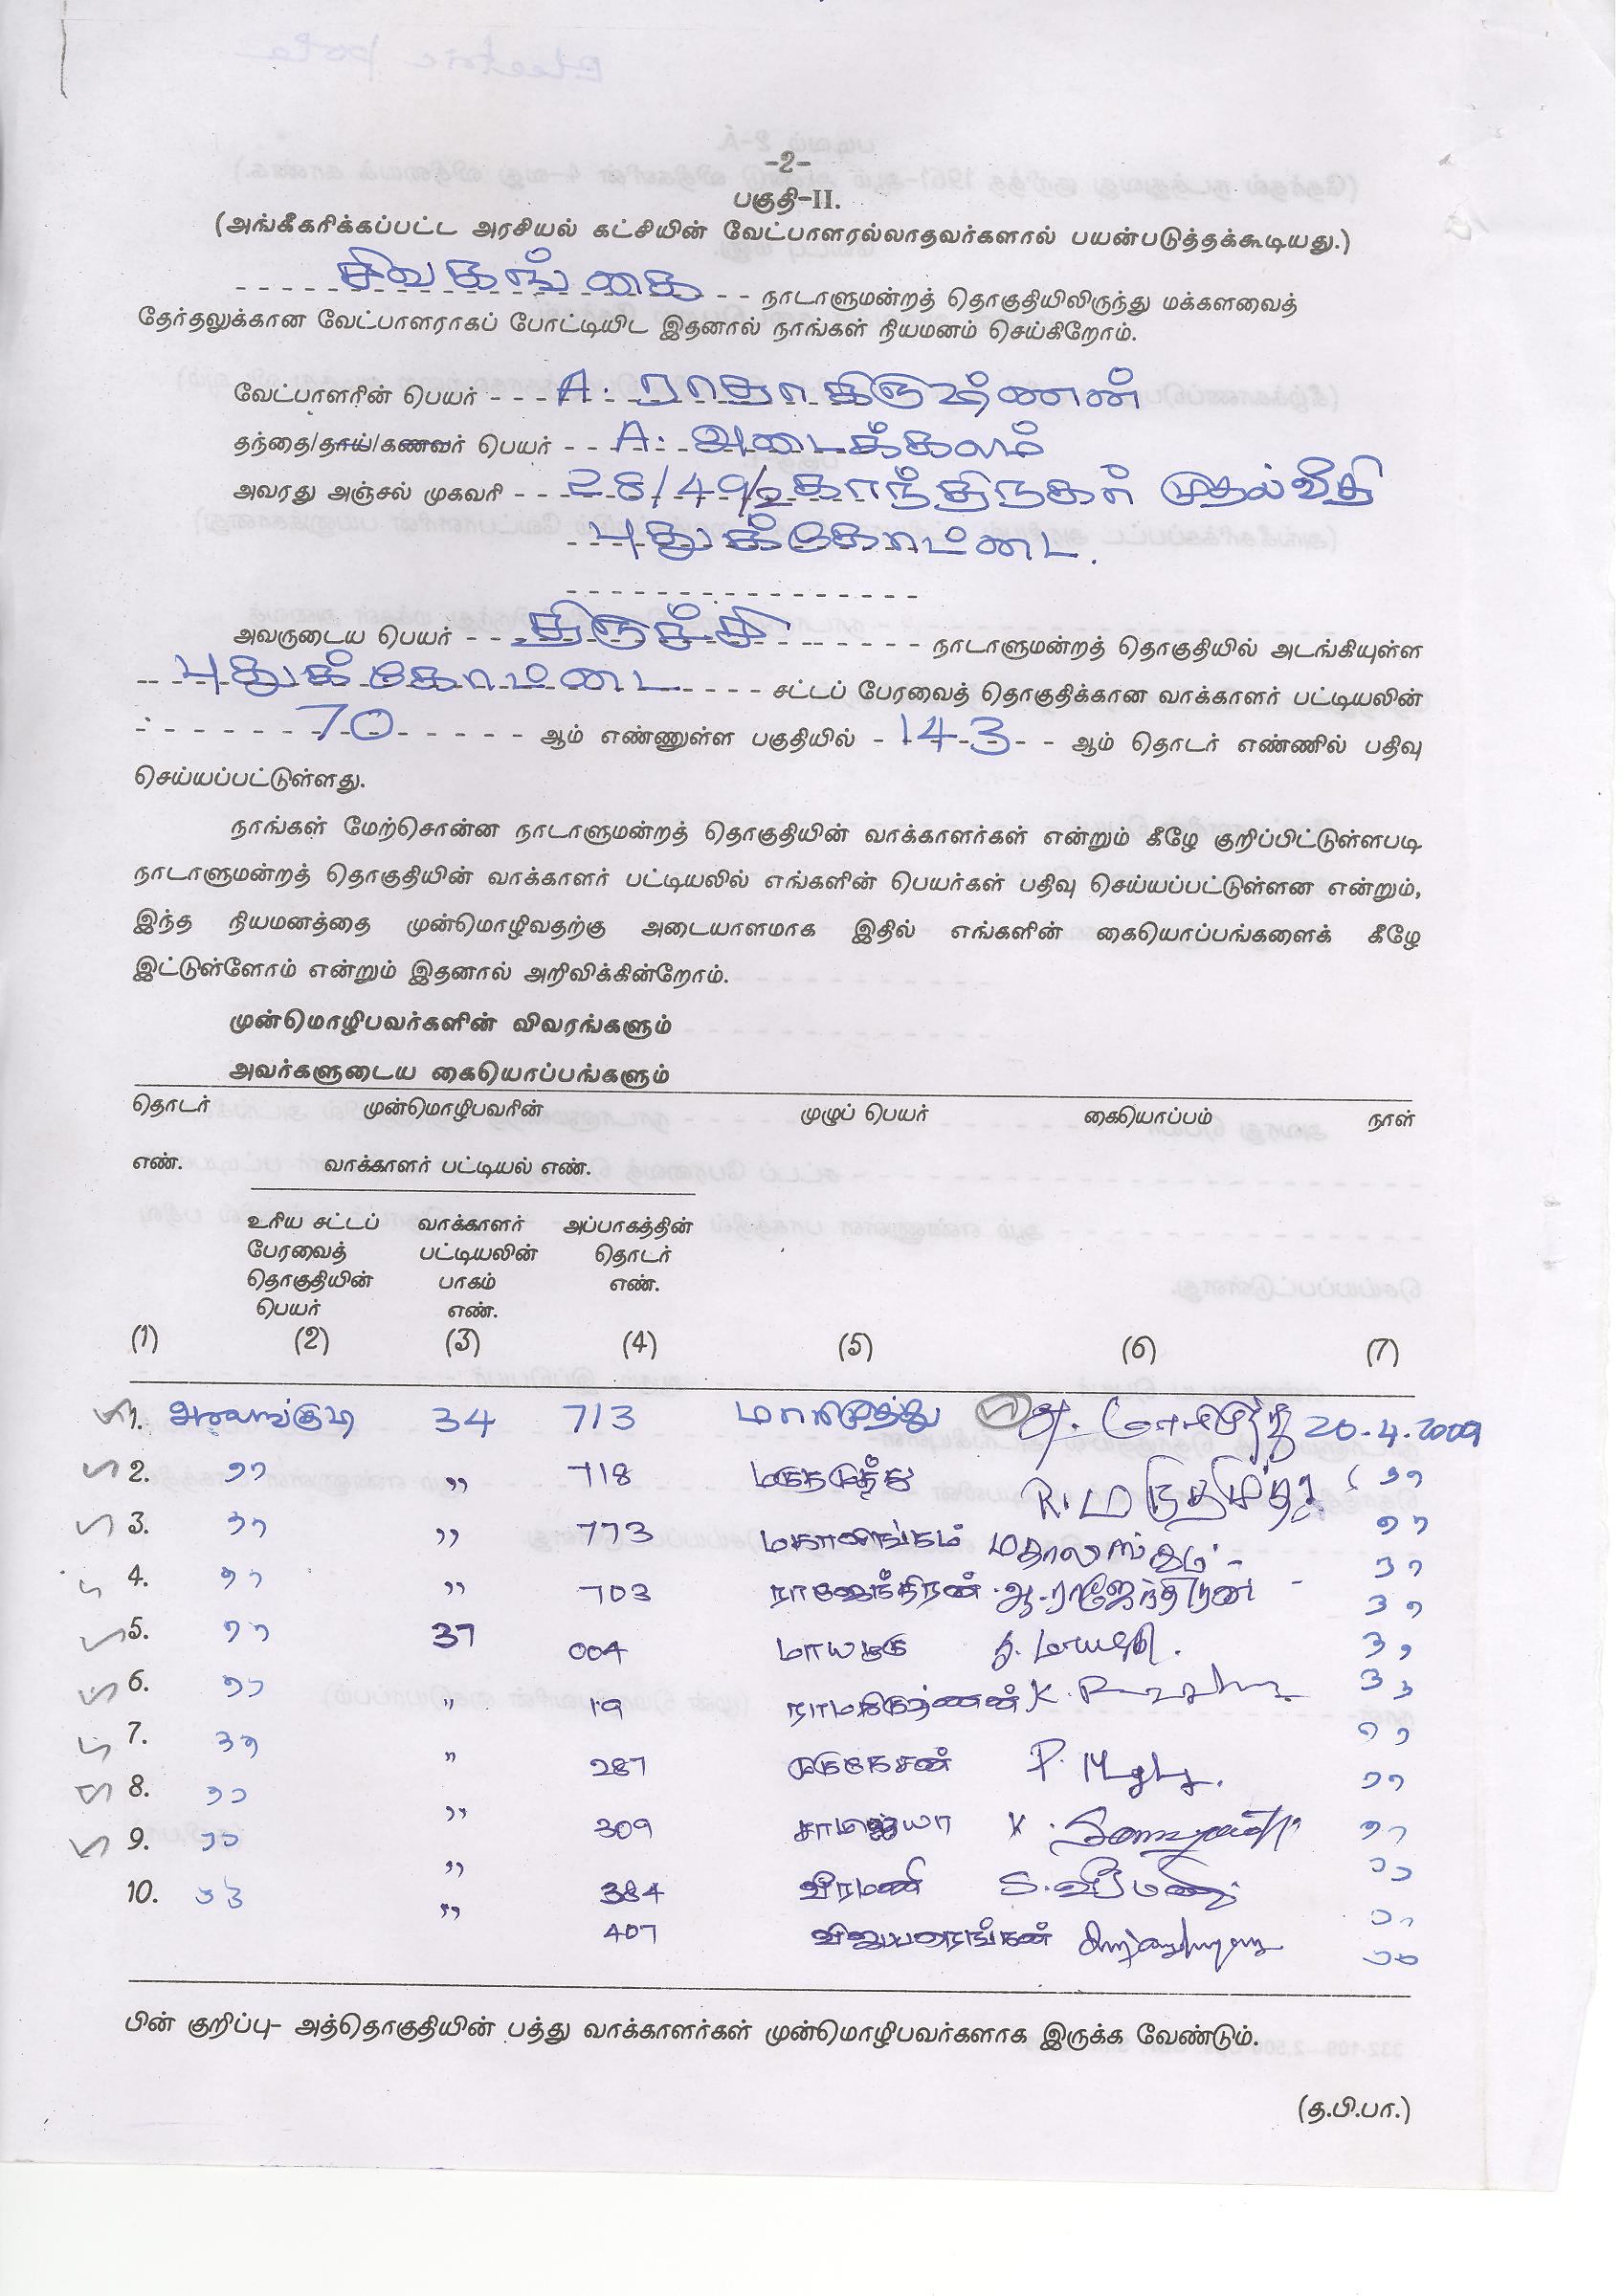 -2-
பகுதி-II.
(அங்கீகரிக்கப்பட்ட அரசியல் கட்சியின் வேட்பாளரல்லாதவர்களால் பயன்படுத்தக்கூடியது.)
சிவகங்கை நாடாளுமன்றத் தொகுதியிலிருந்து மக்களவைத்
தேர்தலுக்கான வேட்பாளராகப் போட்டியிட இதனால் நாங்கள் நியமனம் செய்கிறோம்.
வேட்பாளரின் பெயர் - - - A. ராதாகிருஷ்ணன்
தந்தை/தாய்/கணவர் பெயர் - - A. அடைக்கலம்
அவரது அஞ்சல் முகவரி - - 28/49/2 காந்திநகர் முதல் வீதி
புதுக்கோட்டை.
அவருடைய பெயர் - - திருச்சி - - - - - நாடாளுமன்றத் தொகுதியில் அடங்கியுள்ள
புதுக்கோட்டை - - - - சட்டப் பேரவைத் தொகுதிக்கான வாக்காளர் பட்டியலின்
70 - - - - - ஆம் எண்ணுள்ள பகுதியில் - 143 - - ஆம் தொடர் எண்ணில் பதிவு
செய்யப்பட்டுள்ளது.
நாங்கள் மேற்சொன்ன நாடாளுமன்றத் தொகுதியின் வாக்காளர்கள் என்றும் கீழே குறிப்பிட்டுள்ளபடி
நாடாளுமன்றத் தொகுதியின் வாக்காளர் பட்டியலில் எங்களின் பெயர்கள் பதிவு செய்யப்பட்டுள்ளன என்றும்,
இந்த நியமனத்தை முன்மொழிவதற்கு அடையாளமாக இதில் எங்களின் கையொப்பங்களைக் கீழே
இட்டுள்ளோம் என்றும் இதனால் அறிவிக்கின்றோம்.
முன்மொழிபவர்களின் விவரங்களும்
அவர்களுடைய கையொப்பங்களும்
தொடர் முன்மொழிபவரின் முழுப் பெயர் கையொப்பம் நாள்
எண். வாக்காளர் பட்டியல் எண்.
உரிய சட்டப் வாக்காளர் அப்பாகத்தின்
பேரவைத் பட்டியலின் தொடர்
தொகுதியின் பாகம் எண்.
பெயர் எண்.
(1) (2) (3) (4) (5) (6) (7)
1. ஆலங்குடி 34 713 20.4.2009
2. " " 718 மருதமுத்து R. மருதமுத்து "
3. " " 773 மகாலிங்கம் மகாலிங்கம் "
4. " " 703 ராஜேந்திரன் ஆ.ராஜேந்திரன் "
5. " 37 004 "
6. " " 19 ராமகிருஷ்ணன் "
7. " " 287 முருகேசன் "
8. " " 309 சாமிஐயா "
9. " " 384 வீரமணி S. வீரமணி "
10. " " 407 விஜயரெங்கன் "
பின் குறிப்பு- அத்தொகுதியின் பத்து வாக்காளர்கள் முன்மொழிபவர்களாக இருக்க வேண்டும்.
(த.பி.பா.)